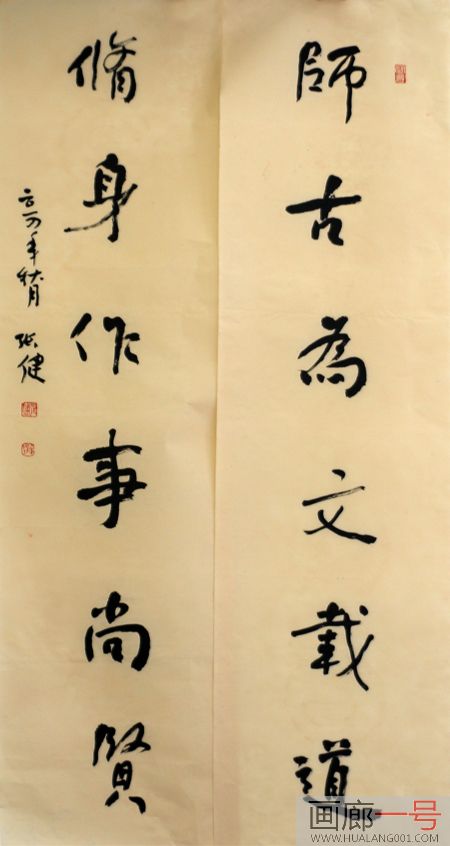 師古為文載道
脩身作事尚賢
年秋月 张健
画廊一号
WWW.HUALANG001.COM